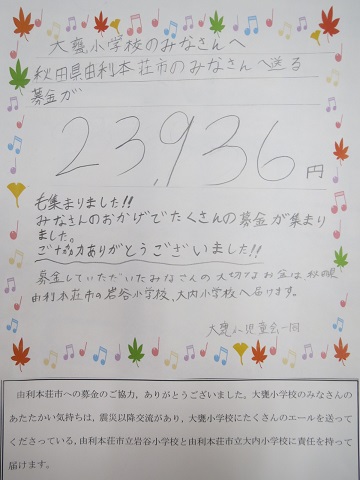 大甕小学校のみなさんへ
秋田県由利本荘市のみなさんへ送る
募金が
23,936円
も集まりました!!
みなさんのおかげでたくさんの募金が集まり
ました。
ご協力ありがとうございました!!
募金していただいたみなさんの大切なお金は、秋田県
由利本荘市の岩谷小学校、大内小学校へ届けます。
大甕小児童会一同
由利本荘市への募金のご協力、ありがとうございました。大甕小学校のみなさんの
あたたかい気持ちは、震災以降交流があり、大甕小学校にたくさんのエールを送って
くださっている、由利本荘市立岩谷小学校と由利本荘市立大内小学校に責任を持って
届けます。